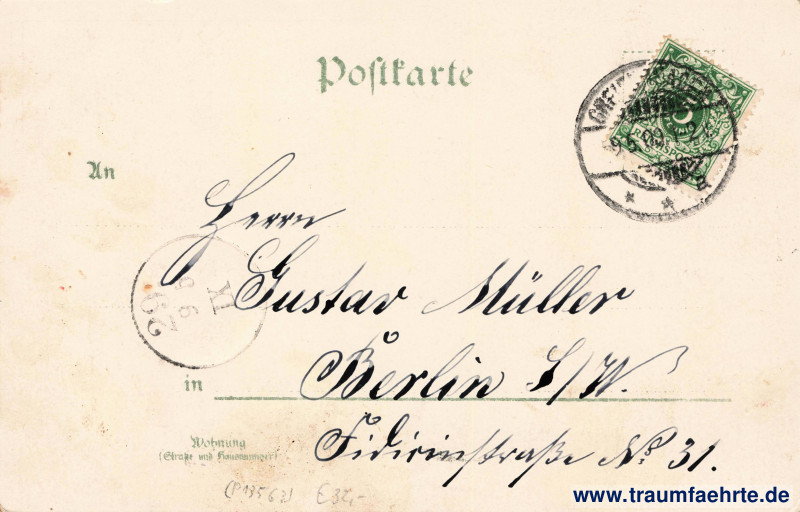 Postkarte
An
Herrn
Gustav Müller
in Berlin S/W.
Wohnung
(Straße und Hausnummer)
Fidicinstraße No 31.
(P13563) €32,-
www.traumfaehrte.de